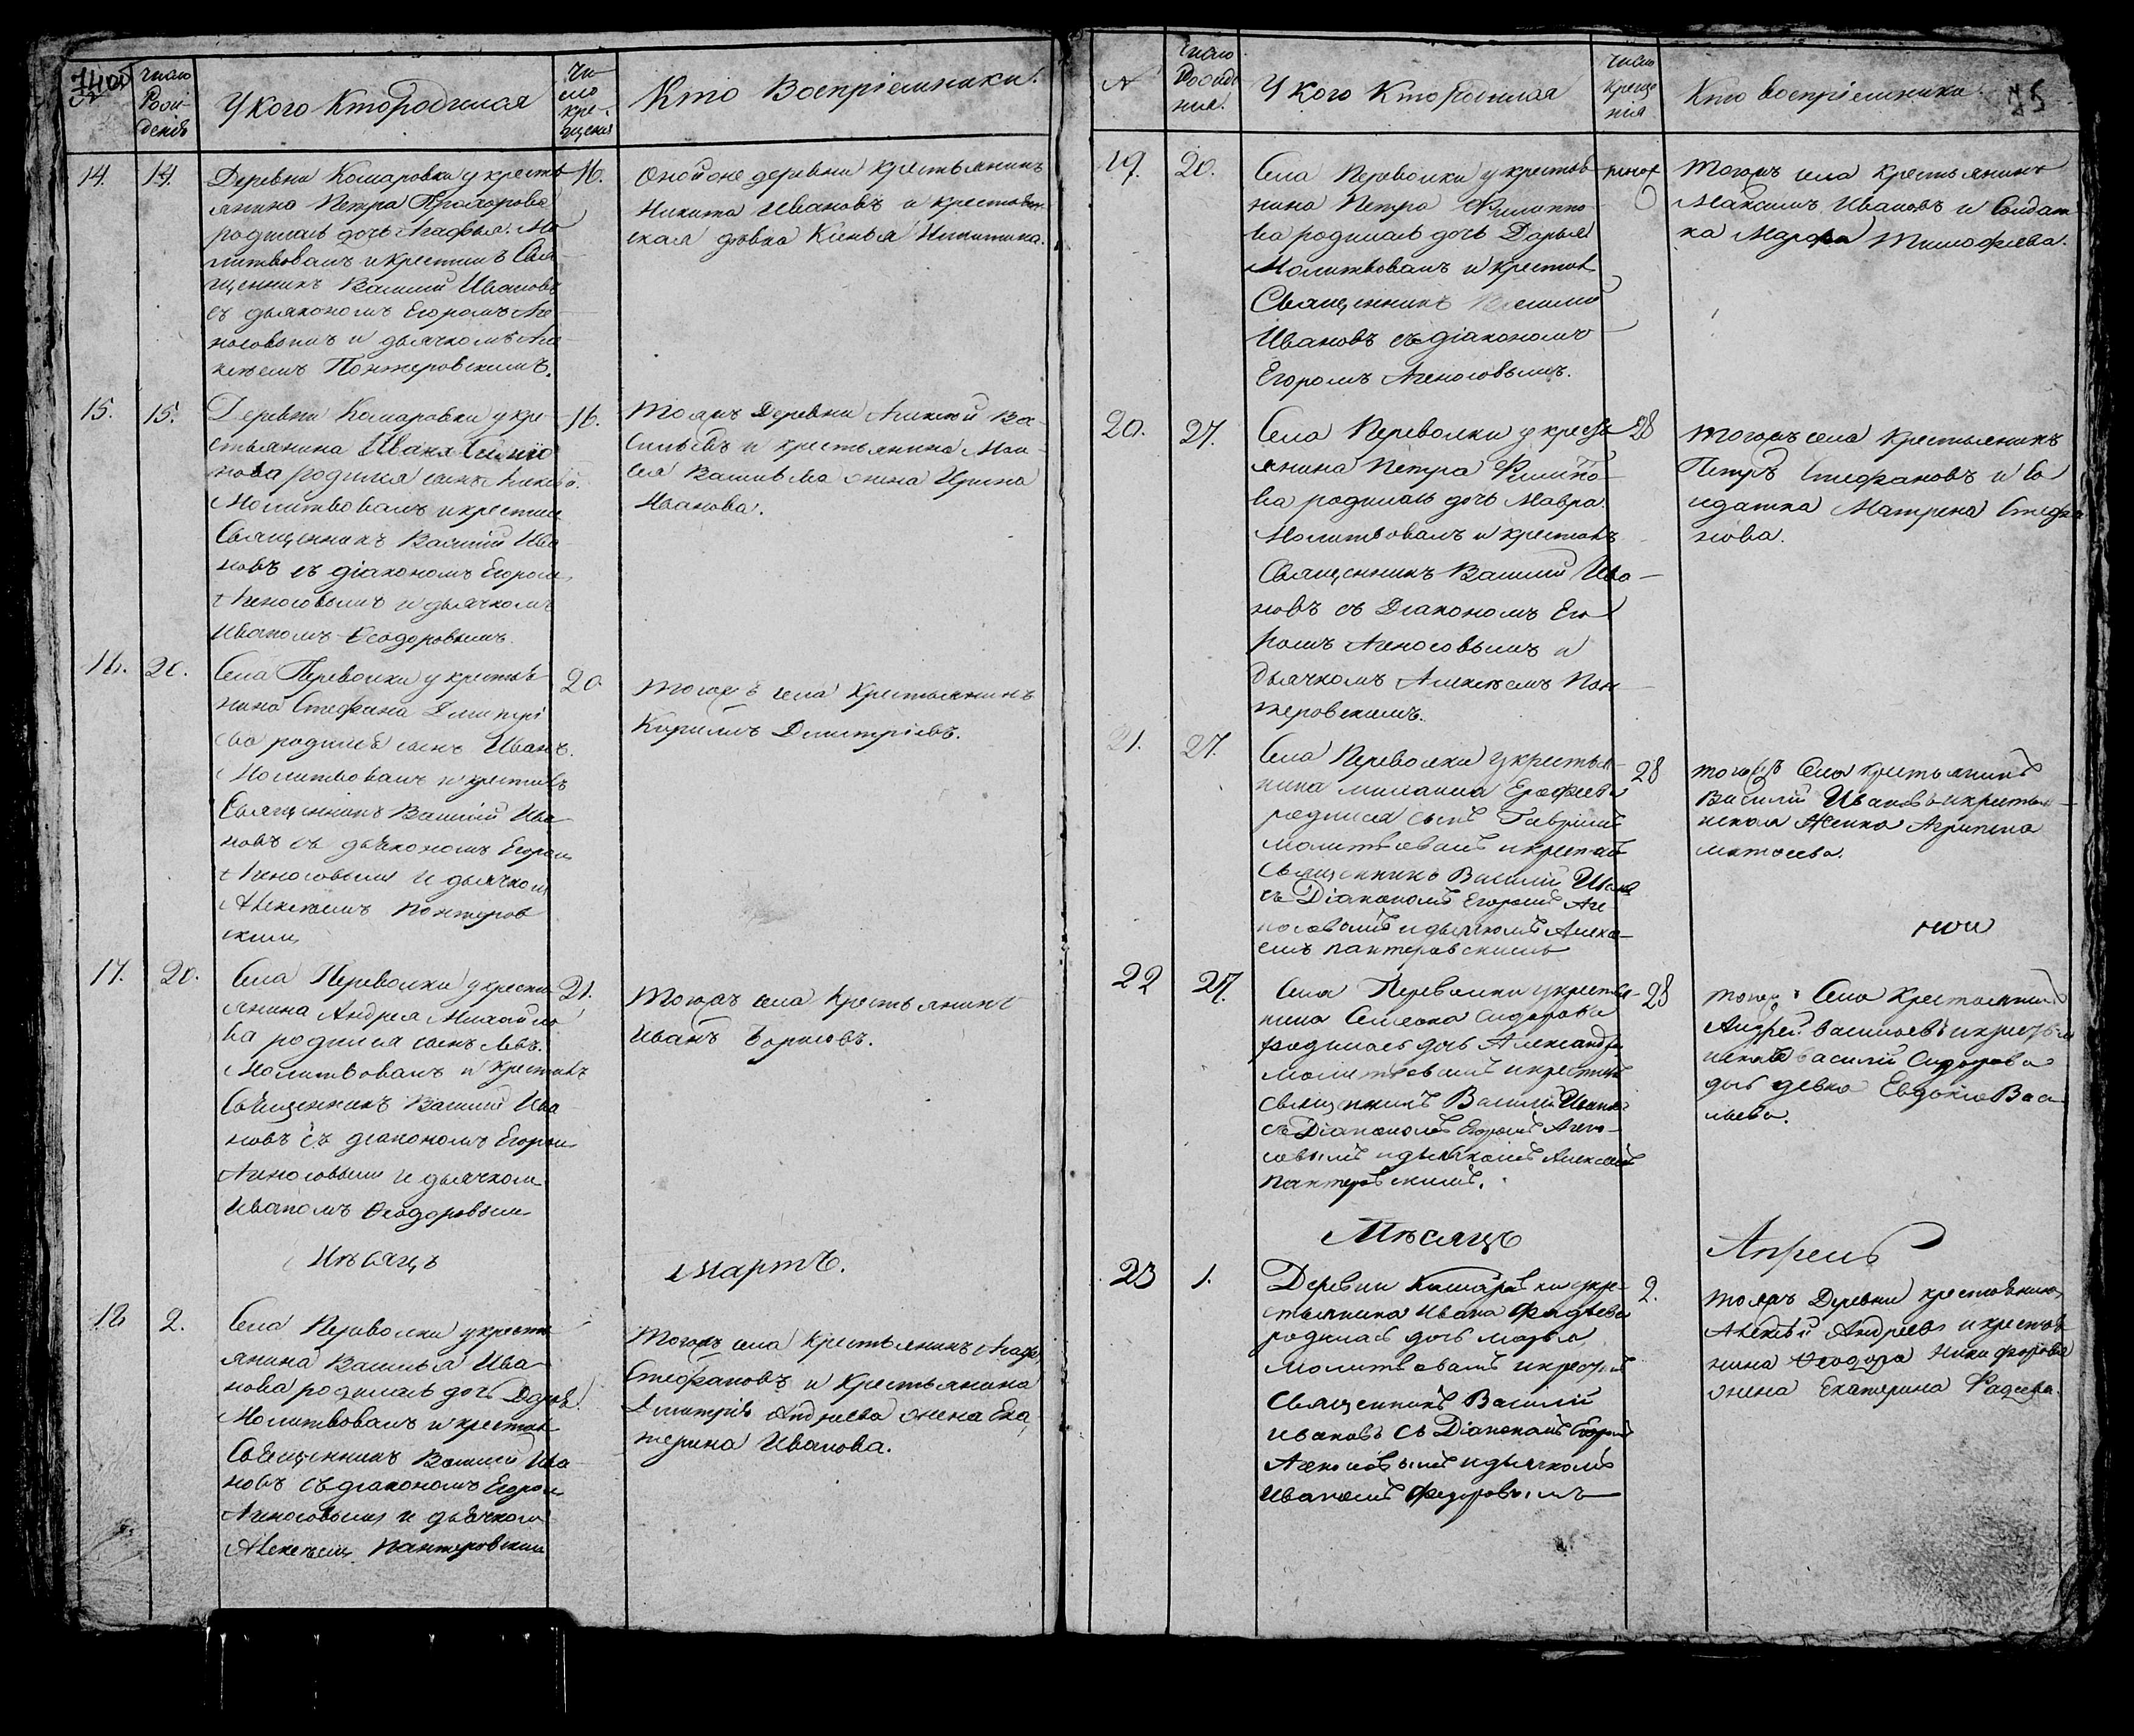 74об
№
Число
Рож-
денiя
У кого Кто родился
Чи-
сло
кре-
щенiя
Кто Воспрiемники.
14.
14.
Деревни Комаровки у кресть-
янина Петра Прохорова
родилась дочь Агафья. Мо-
литвовалъ и крестилъ Свя-
щенникъ Василiй Ивановъ
съ дьякономъ Егоромъ Аге-
носовымъ и дьячкомъ Але-
ксѣемъ Пантеровскимъ.
16.
Оной же деревни Крестьянинъ
Никита Ивановъ и крестьян-
ская дѣвка Ксенья Никитина.
15.
15.
Деревни Комаровки у кре-
стьянина Ивана
нова родился сынъ Алексѣй.
Молитвовалъ и крестил
Священникъ Василiй Ива-
новъ съ дiакономъ Егором
Агеносовымъ и дьячкомъ
Иваномъ Ѳеодоровымъ
16.
Тояжъ Деревни Алексѣй Ва-
сильевъ и крестьянина Мои-
сея Васильева жена Ирина
Иванова.
16.
20.
Села Переволки у крестья-
нина Стефана Дмитрi-
ева родился сынъ Иванъ.
Молитвовалъ и крестилъ
Священникъ Василiй Ива-
новъ съ дьякономъ Егором
Агеносовымъ и дьячком
Алексѣемъ Пантеров-
ским
20
Тогожъ села Крестьянинъ
Кирилъ Дмитрiевъ.
17.
20.
Села Переволки у кресть-
янина Андрея Михайло-
ва родился сынъ Левъ.
Молитвовалъ и Крестилъ
Священникъ Василiй Ива-
новъ съ дiакономъ Егором
Агеносовым и дьячком
Иваномъ Ѳеодоровым
21.
Тогожъ села Крестьянинъ
Иванъ Борисовъ.
Мѣсяцъ
Мартъ.
18
2.
Села Переволки у кресть-
янина Василья Ива-
нова родилась дочь Дарья.
Молитвовалъ и крестил
Священникъ Василiй Ива-
новъ съ дiакономъ Егором
Агеносовым и дьячком
Алексѣем Пантеровским
Тогожъ села Крестьянинъ
Стефановъ и Крестьянина
Дмитрiя Андреева жена Ека-
терина Иванова.
№
Число
Рожде-
нiя.
У Кого Кто Родился
Число
Креще-
нiя
Кто воспрiемники
75
19.
20.
Села Переволки у крестья-
нина Петра Филиппо-
ва родилась дочь Дарья
Молитвовалъ и крестил
Священникъ Василiй
Ивановъ съ дiакономъ
Егоромъ Агеносовымъ.
Тогожъ села Крестьянинъ
Максимъ Ивановъ и Солдат-
ка Марфа Тимофеева.
20.
27.
Села Переволки у кресть-
янина Петра Филиппо-
ва родилась дочь Мавра.
Молитвовалъ и крестилъ
Священникъ Василiй Ива-
новъ съ Дiакономъ Его-
ромъ Агеносовымъ и
дьячкомъ Алексѣемъ Пан-
теровскимъ.
28
Тогожъ села Крестьянинъ
Петръ Стефановъ и Со-
лдатка Матрена Стефа-
нова.
21.
27.
Села Переволки у крестья-
нина Ерофеева
родился сынъ Гаврiилъ
молитвовалъ и крестилъ
Священникъ Василiй Иванов
съ Дiакономъ Егоромъ Аге-
носовымъ и дьячкомъ Алексѣ-
емъ пантеровскимъ
28
тогожъ Села крестьянинъ
Василiй Ивановъ и крестьян-
ская Женка Агрипена
матвеева.
22
27.
Села Переволки у крестья-
нина Семена Сидорова
родилась дочь Александра
молитвовалъ и крестилъ
священникъ Василiй Иванов
съ Дiакономъ Егоромъ Агено-
совымъ и дьячкомъ Алексѣем
пантеровскимъ.
28
тогожъ Села Крестьянинъ
Андрей васильевъ и крестья-
нина василiя Сидорова
дочь девка Евдокiя Васи-
льева.
Мѣсяцъ
Апрель
23
1.
Деревни Комаровки у кре-
стьянина Ивана Фадѣева
родилась дочь марья
Молитвовалъ и крестилъ
Священникъ Василiй
ивановъ съ Дiакономъ Егором
Агеносовымъ и дьячкомъ
Иваномъ Федоровымъ
2.
тояжъ Деревни крестьянинъ
Алексѣй Андреевъ и крестья-
нина Ѳеодора Никифорова
жена Екатерина Фадеева.